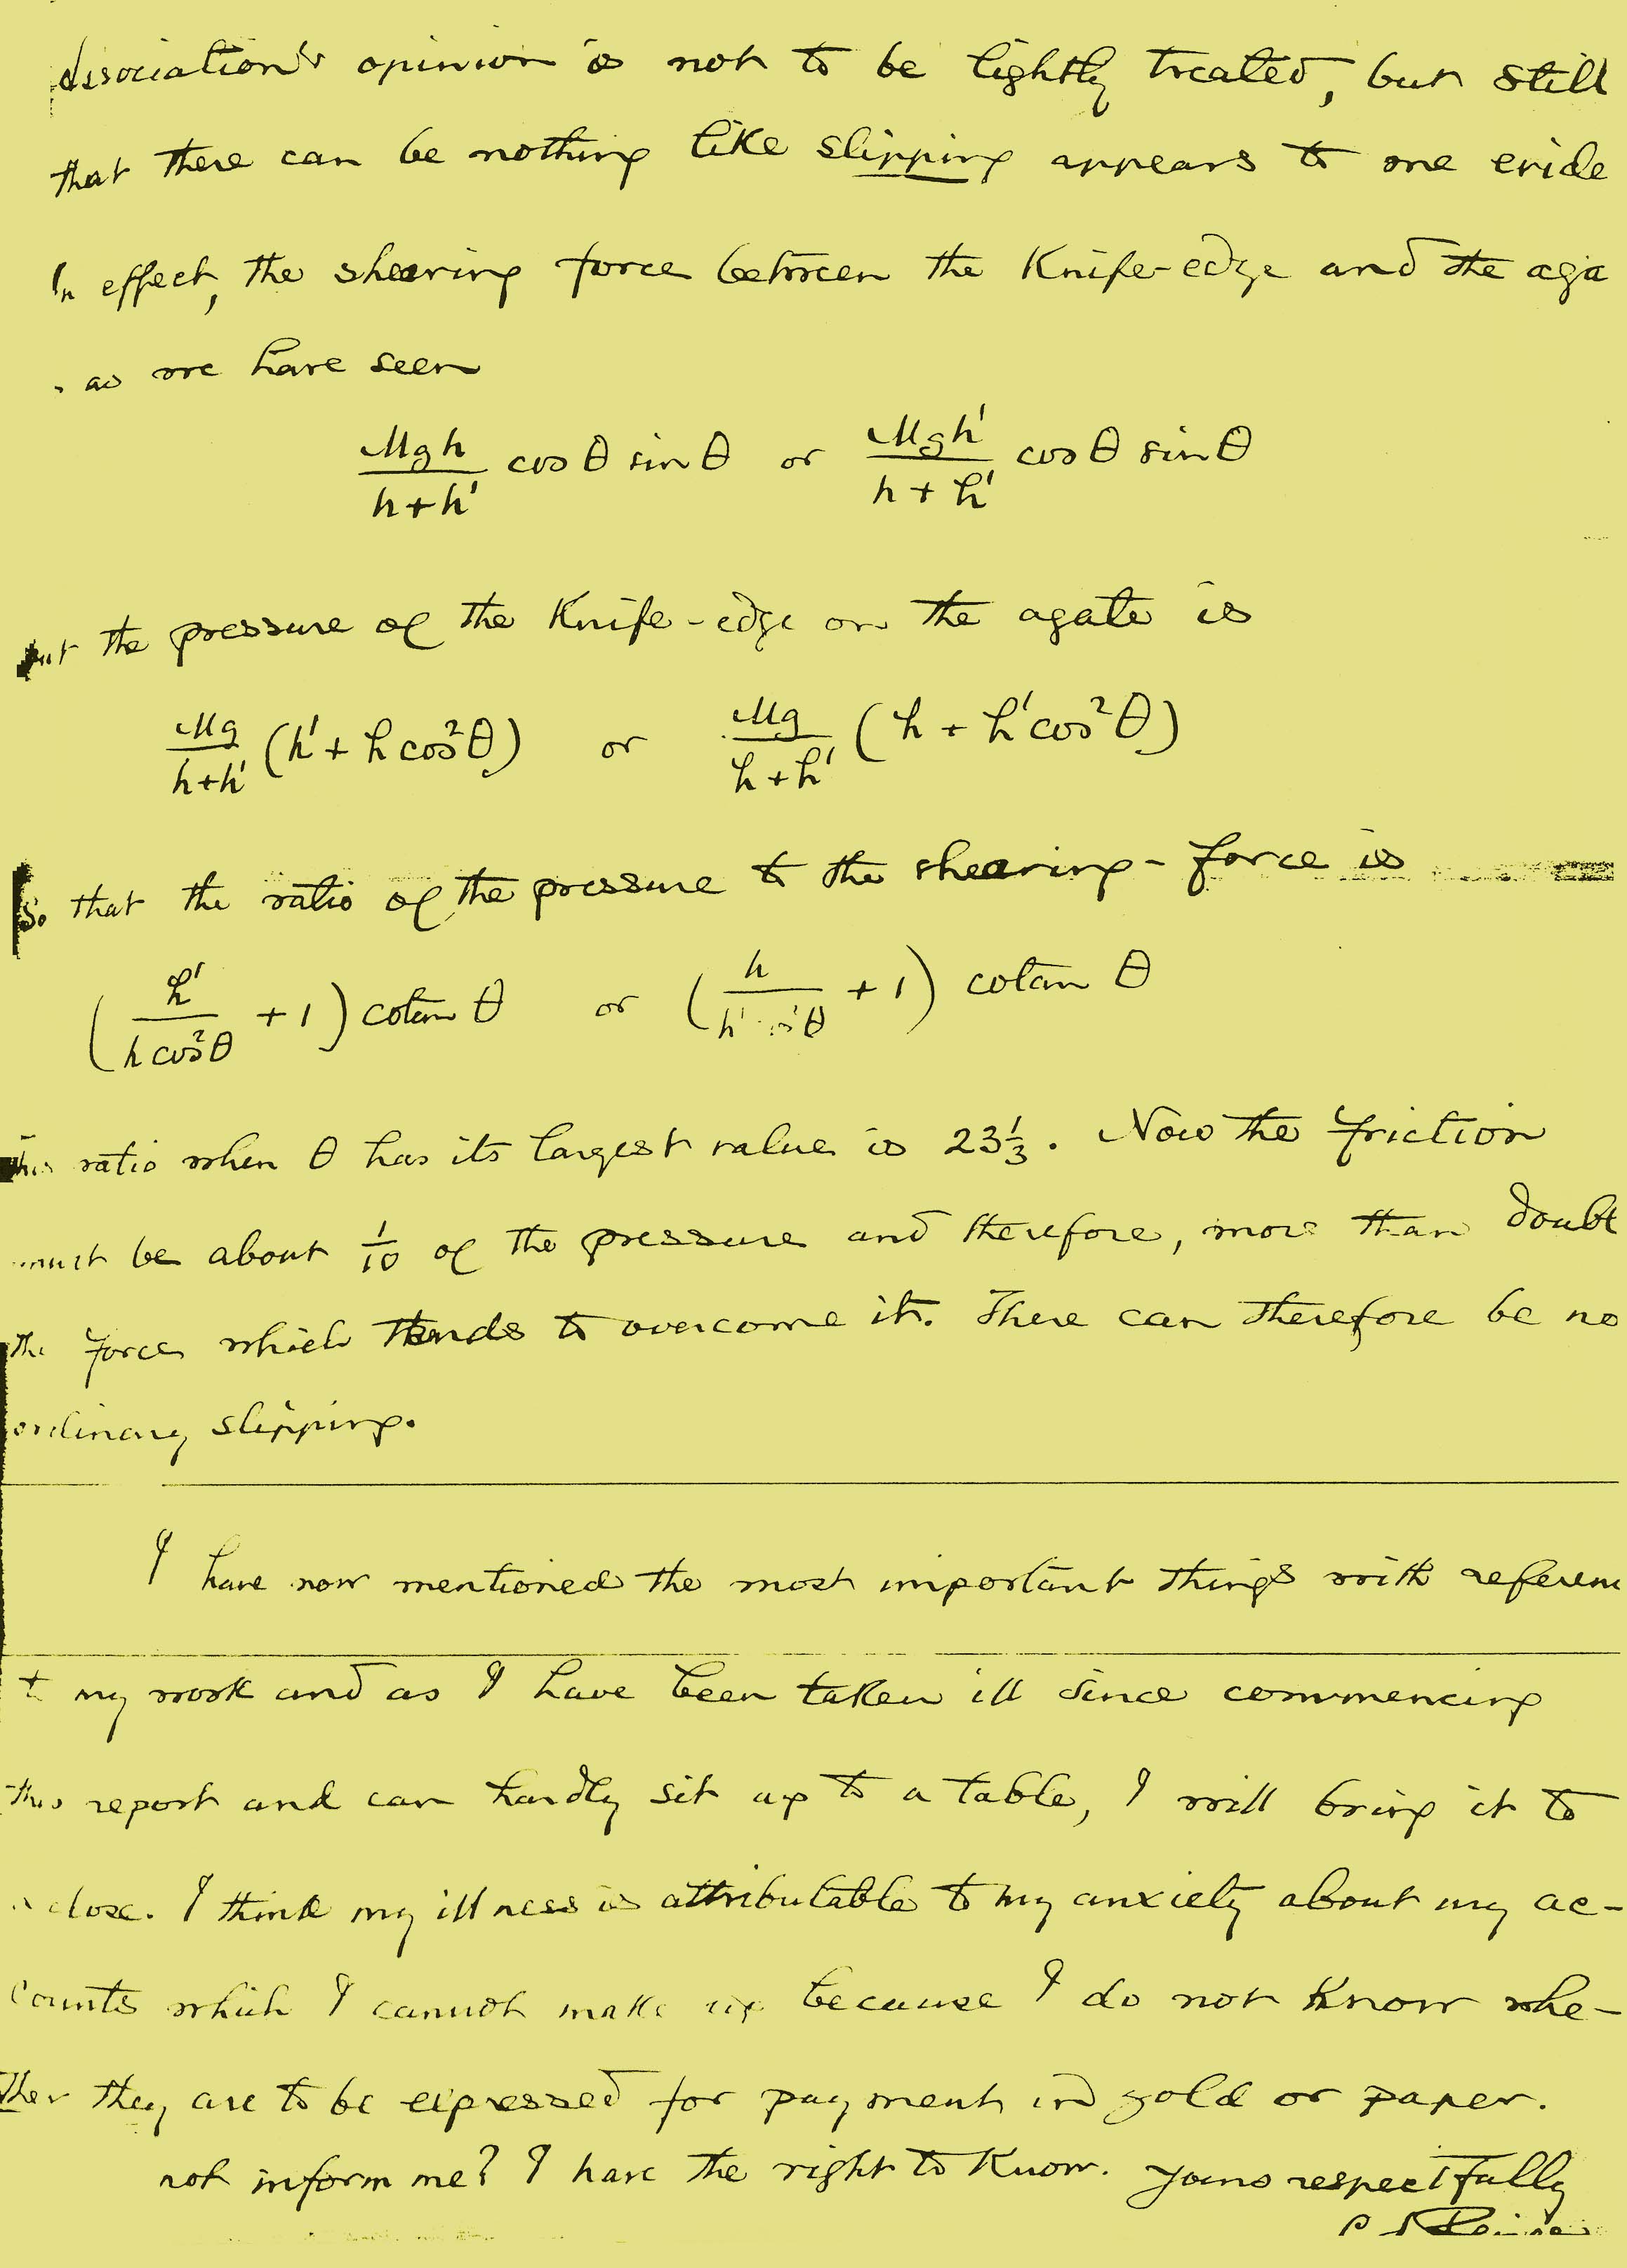 Association's opinion is not to be lightly treated, but still
that there can be nothing like slipping appears to me evide
In effect, the shearing force between the Knife-edge and the aga
as we have seen
Mgh/(h+h') cos θ sin θ or Mgh'/(h+h') cos θ sin θ
but the pressure of the Knife-edge on the agate is
Mg/(h+h') (h' + h cos²θ) or Mg/(h+h') (h + h' cos²θ)
So that the ratio of the pressure to the shearing-force is
(h'/(h cos²θ) + 1) cotan θ or (h/(h' cos²θ) + 1) cotan θ
this ratio when θ has its largest value is 23⅓. Now the friction
must be about 1/10 of the pressure and therefore, more than doubl
the force which tends to overcome it. There can therefore be no
ordinary slipping.
I have now mentioned the most important things with referenc
to my work and as I have been taken ill since commencing
this report and can hardly sit up to a table, I will bring it to
a close. I think my illness is attributable to my anxiety about my ac-
counts which I cannot make up because I do not Know whe-
ther they are to be expressed for payment in gold or paper.
not inform me? I have the right to Know. Yours respectfully
C S Peirce